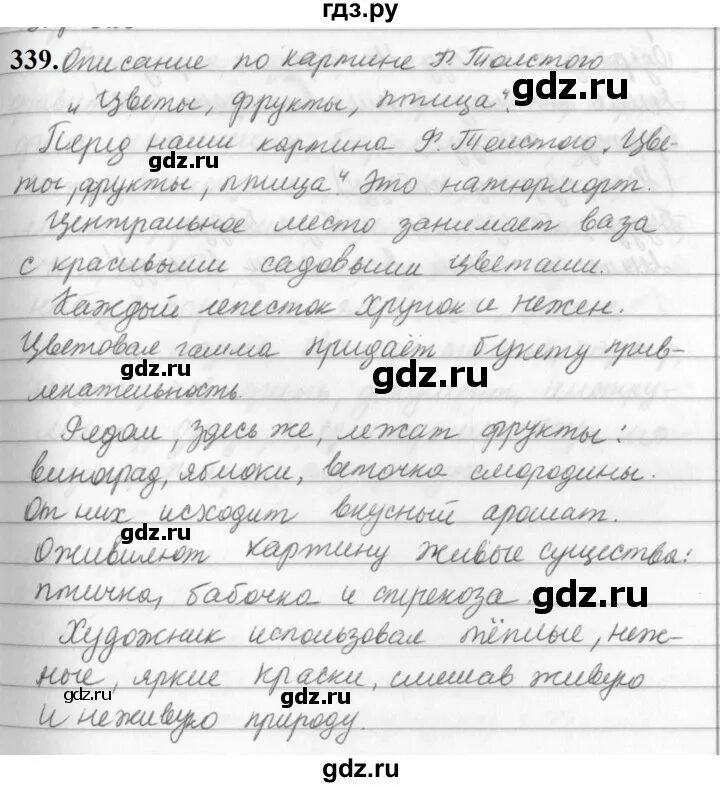 гдз.ру
339. Описание по картине Ф. Толстого
„Цветы, фрукты, птица".
gdz.ru
gdz.ru
Перед нами картина Ф. Толстого „Цве-
ты, фрукты, птица". Это натюрморт.
Центральное место занимает ваза
с красивыми садовыми цветами.
gdz.ru
gdz.ru
Каждый лепесток хрупок и нежен.
Цветовая гамма придаёт букету прив-
gdz.ru
gdz.ru
лекательность.
Рядом, здесь же, лежат фрукты:
виноград, яблоки, веточка смородины.
От них исходит вкусный аромат.
gdz.ru
gdz.ru
Оживляют картину живые существа:
птичка, бабочка и стрекоза
gdz.ru
gdz.ru
Художник использовал тёплые, неж-
ные, яркие краски, смешав живую
gdz.ru
gdz.ru
и неживую природу.
gdz.ru